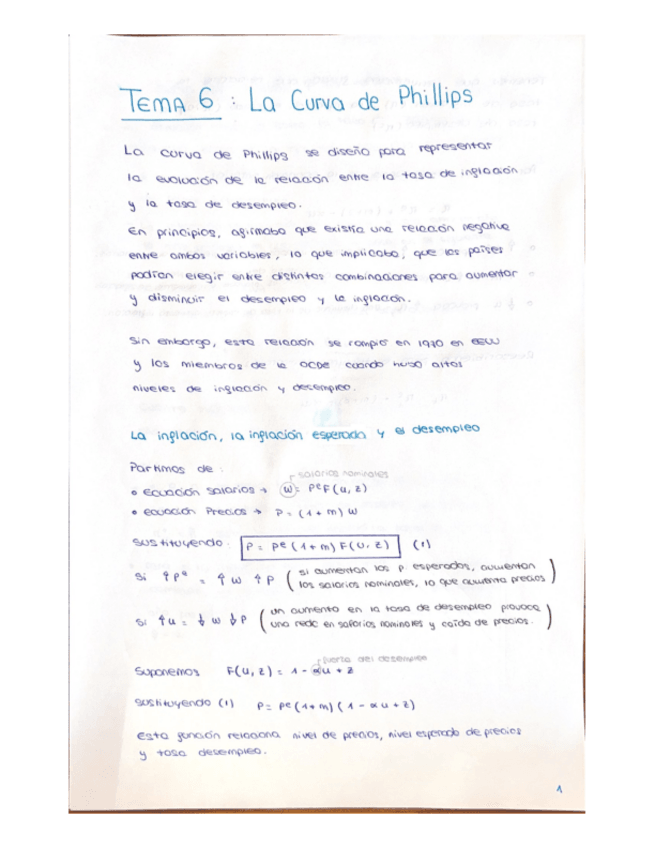 TEMA 6 : La Curva de Phillips
La curva de Phillips se diseño para representar
la evolución de la relación entre la tasa de inflación
y la tasa de desempleo.
En principios, afirmaba que existía una relación negativa
entre ambas variables, lo que implicaba, que los países
podían elegir entre distintas combinaciones para aumentar
y disminuir el desempleo y la inflación.
Sin embargo, esta relación se rompió en 1970 en EEUU
y los miembros de la OCDE cuando hubo altos
niveles de inflación y desempleo.
La inflación, la inflación esperada y el desempleo
Partimos de :
salarios nominales
• Ecuación salarios → W = PᵉF(u, z)
• Ecuación Precios → P = (1+m) W
Sustituyendo: P = Pᵉ(1+m) F(u, z) (1)
Si ↑Pᵉ = ↑W ↑P (si aumentan los P esperados, aumentan
los salarios nominales, lo que aumenta precios)
Si ↑u = ↓W ↓P (un aumento en la tasa de desempleo provoca
una redc en salarios nominales y caída de precios.)
del desempleo
Suponemos F(u, z) = 1 - αu + z
Sustituyendo (1) P = Pᵉ(1+m)(1 - αu + z)
Esta función relaciona nivel de precios, nivel esperado de precios
y tasa desempleo.
1